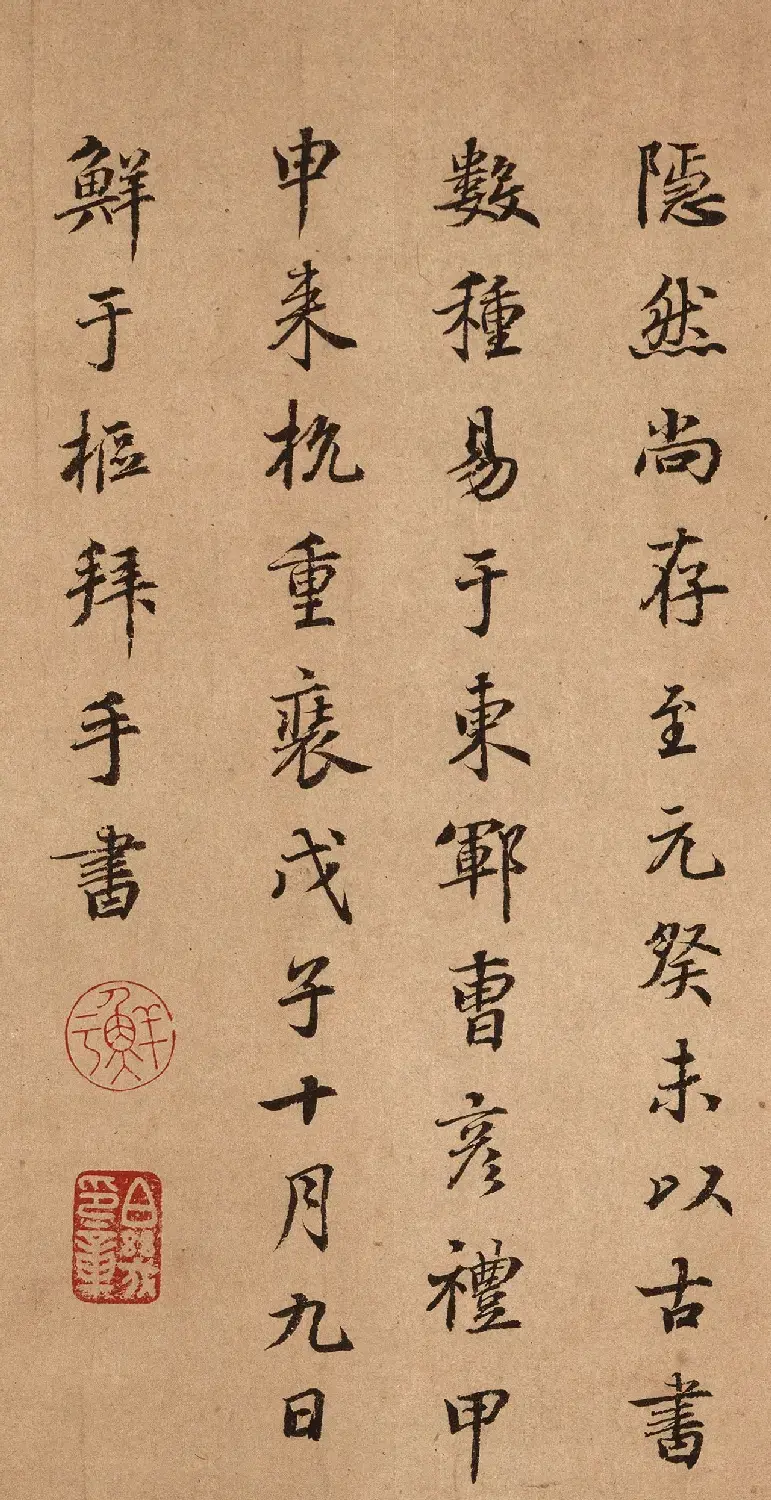 隱然尚存至元癸未以古書
數種易于東鄆曹彦禮甲
申来杭重裝戊子十月九日
鮮于樞拜手書
鮮于